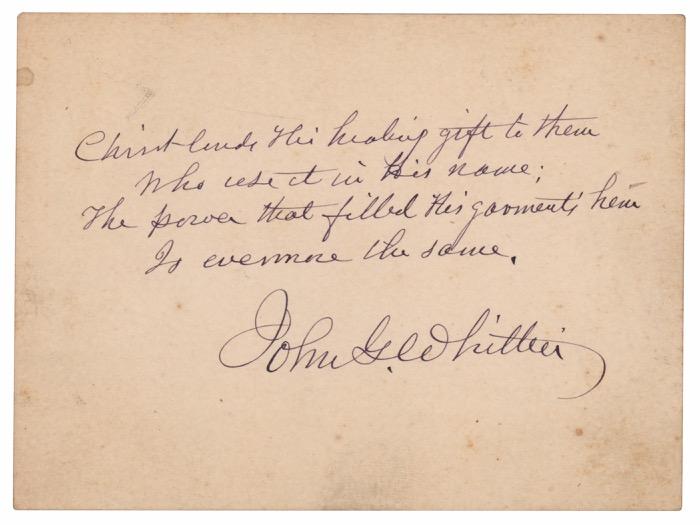 Christ lends His healing gift to them
Who use it in His name;
The power that filled His garment's hem
Is evermore the same.
John G. Whittier